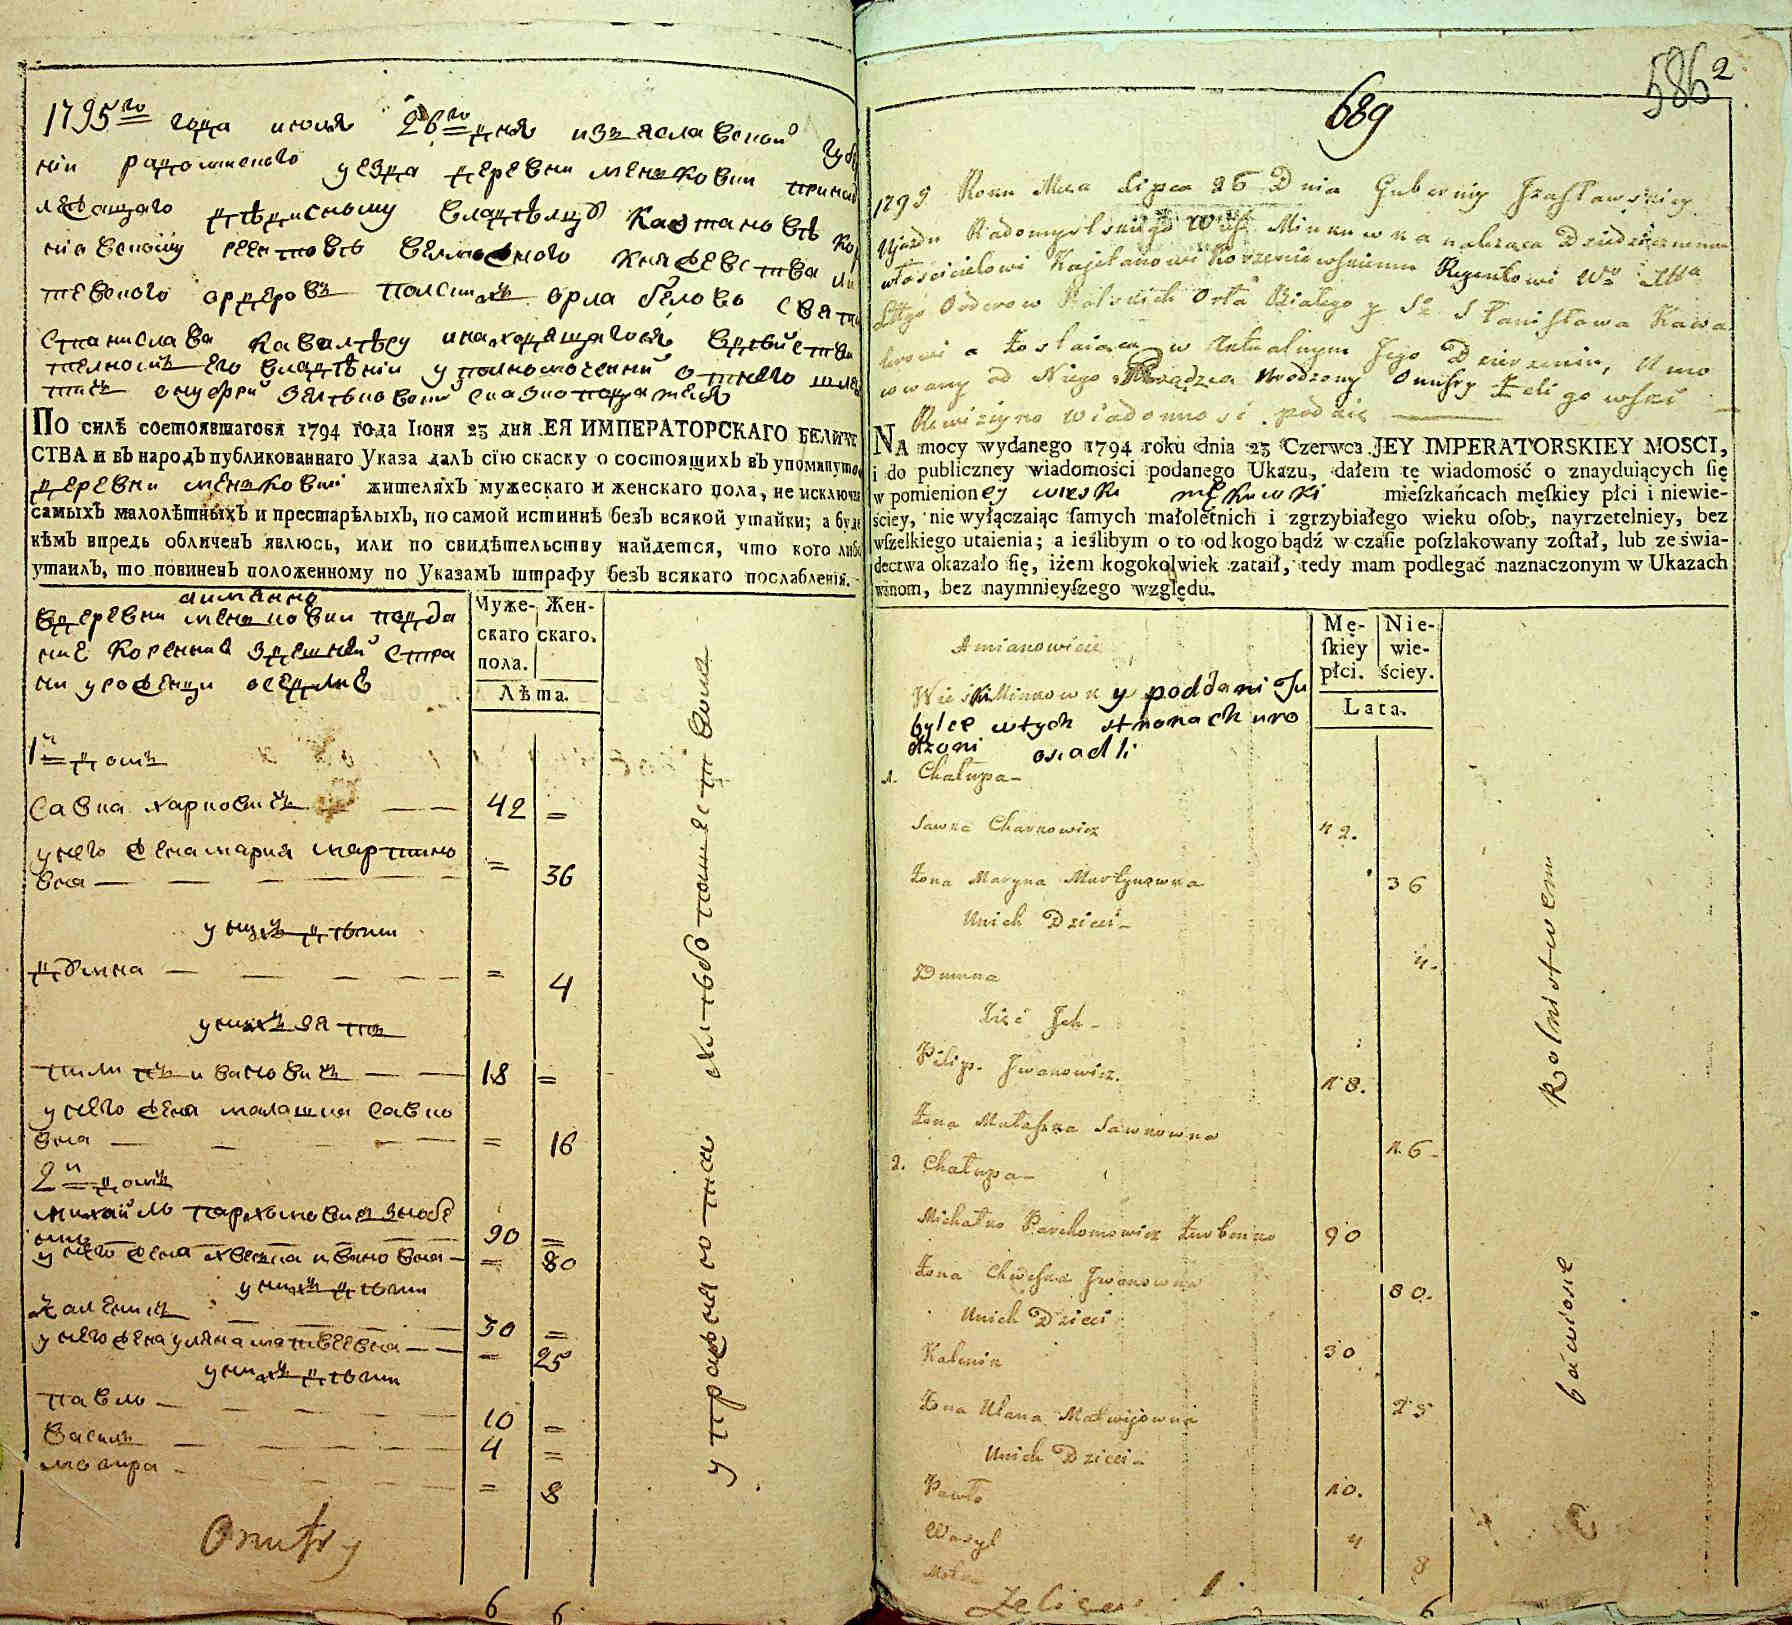 1795го года июля 26го дня изъяславской губ
нiи радомысского уезда деревни менковки принад
лежащаго дѣдисному владѣлцу каэтановѣ кор
Станислава кавалѣру инаходящагося
телномъ его владѣнiи уполномоченний отнего
онуфрий
ПО силѣ состоявшагося 1794 года Iюня 23 дня ЕЯ ИМПЕРАТОРСКАГО ВЕЛИЧЕ
СТВА и въ народъ публикованнаго Указа далъ сїю скаску о состоящихъ въ упомянуто
деревни менковки жителяхъ мужескаго и женскаго пола, не исключая
самыхъ малолѣтныхъ и престарѣлыхъ, по самой истиннѣ безъ всякой утайки; а буде
кѣмъ впредь обличенъ явлюсь, или по свидѣтельству найдется, что кого либо
утаилъ, то повиненъ положенному по Указамъ штрафу безъ всякаго послабленїя.
аимянно
вдеревни менковки подда
ние коренние здешней стра
ни уроженци оседлие
Муже- Жен-
скаго скаго.
пола.
Лѣта.
1й домъ
Савка харковичъ 42 =
унего жена мария мартино
вна = 36
унихъ дѣти
домна = 4
унихъ зять
пилипъ ивановичъ 18 =
унего жена малашка савко
вна = 16
2й домъ
михайло пархомовичъ
90 =
унего жена хвеска ивановна = 80
унихъ дѣти
калѣникъ 30 =
унего жена уляна матвѣевна = 25
унихъ дѣти
павло 10 =
василь 4 =
мотра = 8
упражняютца хлѣбопашеством
Onufry
6 6
586 2
689
1795 Roku Mca Lipca 26 Dnia Gubernij Izasławskiey
Ujazdu Radomyslskiego Wieś Minkuwka należąca Dziedzicznemu
włoscicielowi Kajetanowi Korzeniewskiemu Regentowi
Orderow Polskich Orła Białego y Sº Stanisława Kawa
lerowi a zostaiąca w Aktualnym Jego Dzierzeniu, Umo
cowany od Niego Rządzca Urodzony Onufry Żeligowski
Rewizyyną Wiadomosc podaię
NA mocy wydanego 1794 roku dnia 23 Czerwca JEY IMPERATORSKIEY MOSCI,
i do publiczney wiadomości podanego Ukazu, dałem tę wiadomość o znayduiących ſię
w pomienioney wioski mękowki mieſzkańcach męſkiey płci i niewie-
ściey, nie wyłączaiąc ſamych małoletnich i zgrzybiałego wieku oſob, nayrzetelniey, bez
wſzelkiego utaienia; a ieślibym o to od kogo bądź w czaſie poſzlakowany został, lub ze świa-
dectwa okazało ſię, iżem kogokolwiek zataił, tedy mam podlegać naznaczonym w Ukazach
winom, bez naymnieyſzego względu.
A mianowicie
Wieśki Minkowky poddani Tu
bylce wtych stronach uro
dzoni osiadli
Mę- Nie-
ſkiey wie-
płci. ściey.
Lata.
1. Chałupa
Sawka Charkowicz 42.
Żona Maryna Martynowna 36
Unich Dzieci
Dumna 4.
Zięć Ich
Pilip Iwanowicz. 18.
Żona Małaszka Sawkowna 16
2. Chałupa
Michałko Parchomowicz 90
Żona Chweska Iwanowna 80.
Unich Dzieci
Kalenik 30
Żona Ulana Matwijowna 25
Unich Dzieci
Pawło 10.
Wasyl 4
8
Rolnictwem
bawione
6